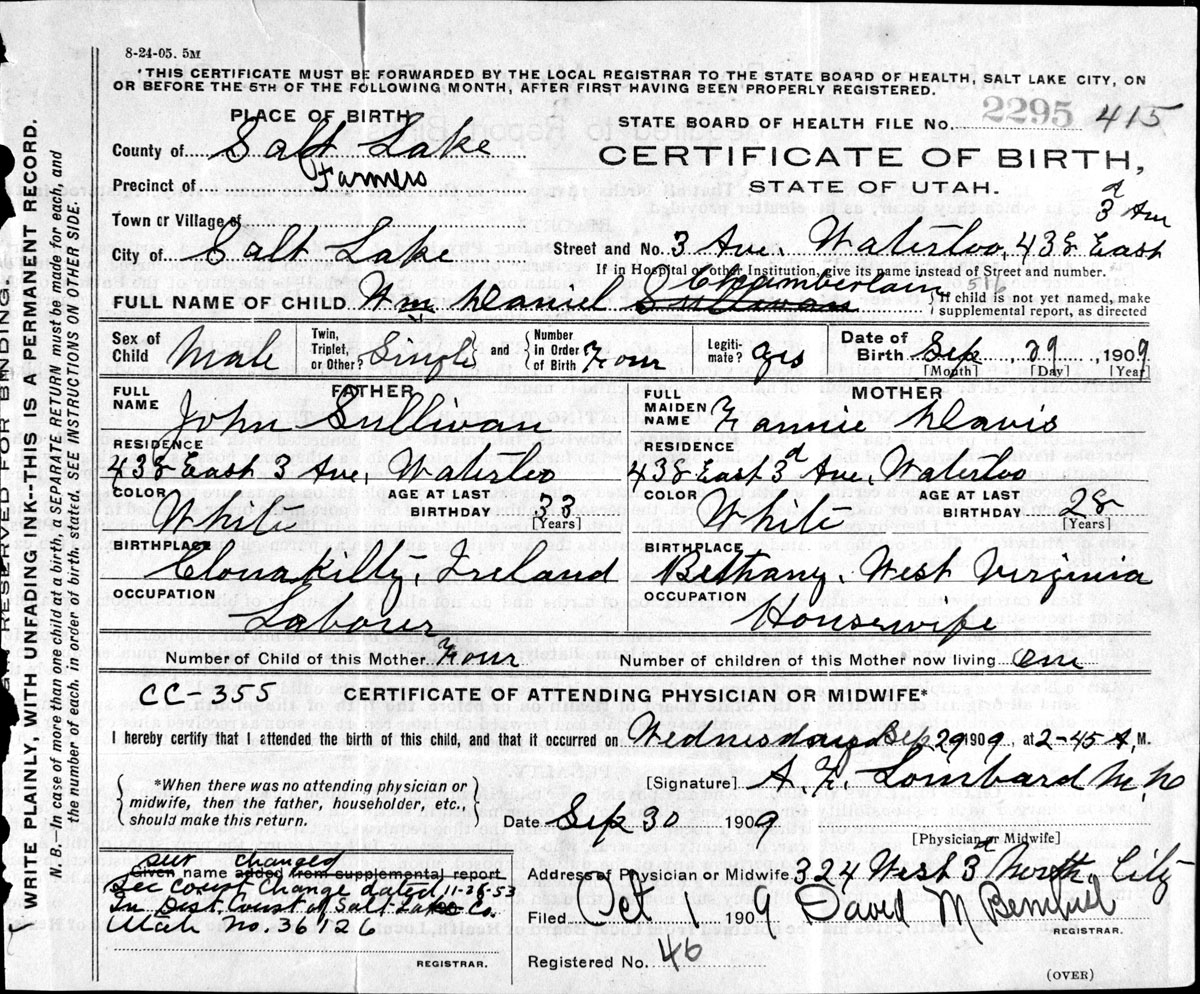 8-24-05. 5M
*THIS CERTIFICATE MUST BE FORWARDED BY THE LOCAL REGISTRAR TO THE STATE BOARD OF HEALTH, SALT LAKE CITY, ON
OR BEFORE THE 5TH OF THE FOLLOWING MONTH, AFTER FIRST HAVING BEEN PROPERLY REGISTERED.
PLACE OF BIRTH
STATE BOARD OF HEALTH FILE No. 2295 415
County of Salt Lake
CERTIFICATE OF BIRTH,
Precinct of Farmers
STATE OF UTAH.
Town or Village of
d
3 Ave
City of Salt Lake Street and No. 3 Ave. Waterloo, 438 East
If in Hospital or other Institution, give its name instead of Street and number.
Chamberlain
FULL NAME OF CHILD. Wm Daniel Sullivan { If child is not yet named, make
supplemental report, as directed
Sex of Child Male Twin, Triplet, or Other? Single and { Number in Order of Birth Four Legiti- mate? Yes Date of Birth Sep 29 1909
[Month] [Day] [Year]
FATHER
FULL NAME John Sullivan
MOTHER
FULL MAIDEN NAME Fannie Davis
RESIDENCE
438 East 3 Ave, Waterloo
RESIDENCE
438 East 3d Ave, Waterloo
COLOR White AGE AT LAST BIRTHDAY 33 [Years]
COLOR White AGE AT LAST BIRTHDAY 28 [Years]
BIRTHPLACE
Clonakilly, Ireland
BIRTHPLACE
Bethany, West Virginia
OCCUPATION
Laborer
OCCUPATION
Housewife
Number of Child of this Mother Four Number of children of this Mother now living One
CC-355 CERTIFICATE OF ATTENDING PHYSICIAN OR MIDWIFE*
I hereby certify that I attended the birth of this child, and that it occurred on Wednesday Sep 29 1909, at 2-45 A, M.
*When there was no attending physician or
midwife, then the father, householder, etc.,
should make this return.
[Signature] A. F. Lombard M.D
Date Sep 30 1909
[Physician or Midwife]
sur changed
Given name added from supplemental report
See Court Change dated 11-28-53
In Dist. Court of Salt Lake Co.
Utah No. 36126
REGISTRAR.
Address of Physician or Midwife 324 West 3d North, City
Filed Oct 1 1909 David M
REGISTRAR.
Registered No. 46
(OVER)
RESERVED FOR BINDING.
WRITE PLAINLY, WITH UNFADING INK--THIS IS A PERMANENT RECORD.
N. B.--In case of more than one child at a birth, a SEPARATE RETURN must be made for each and
the number of each, in order of birth, stated. SEE INSTRUCTIONS ON OTHER SIDE.